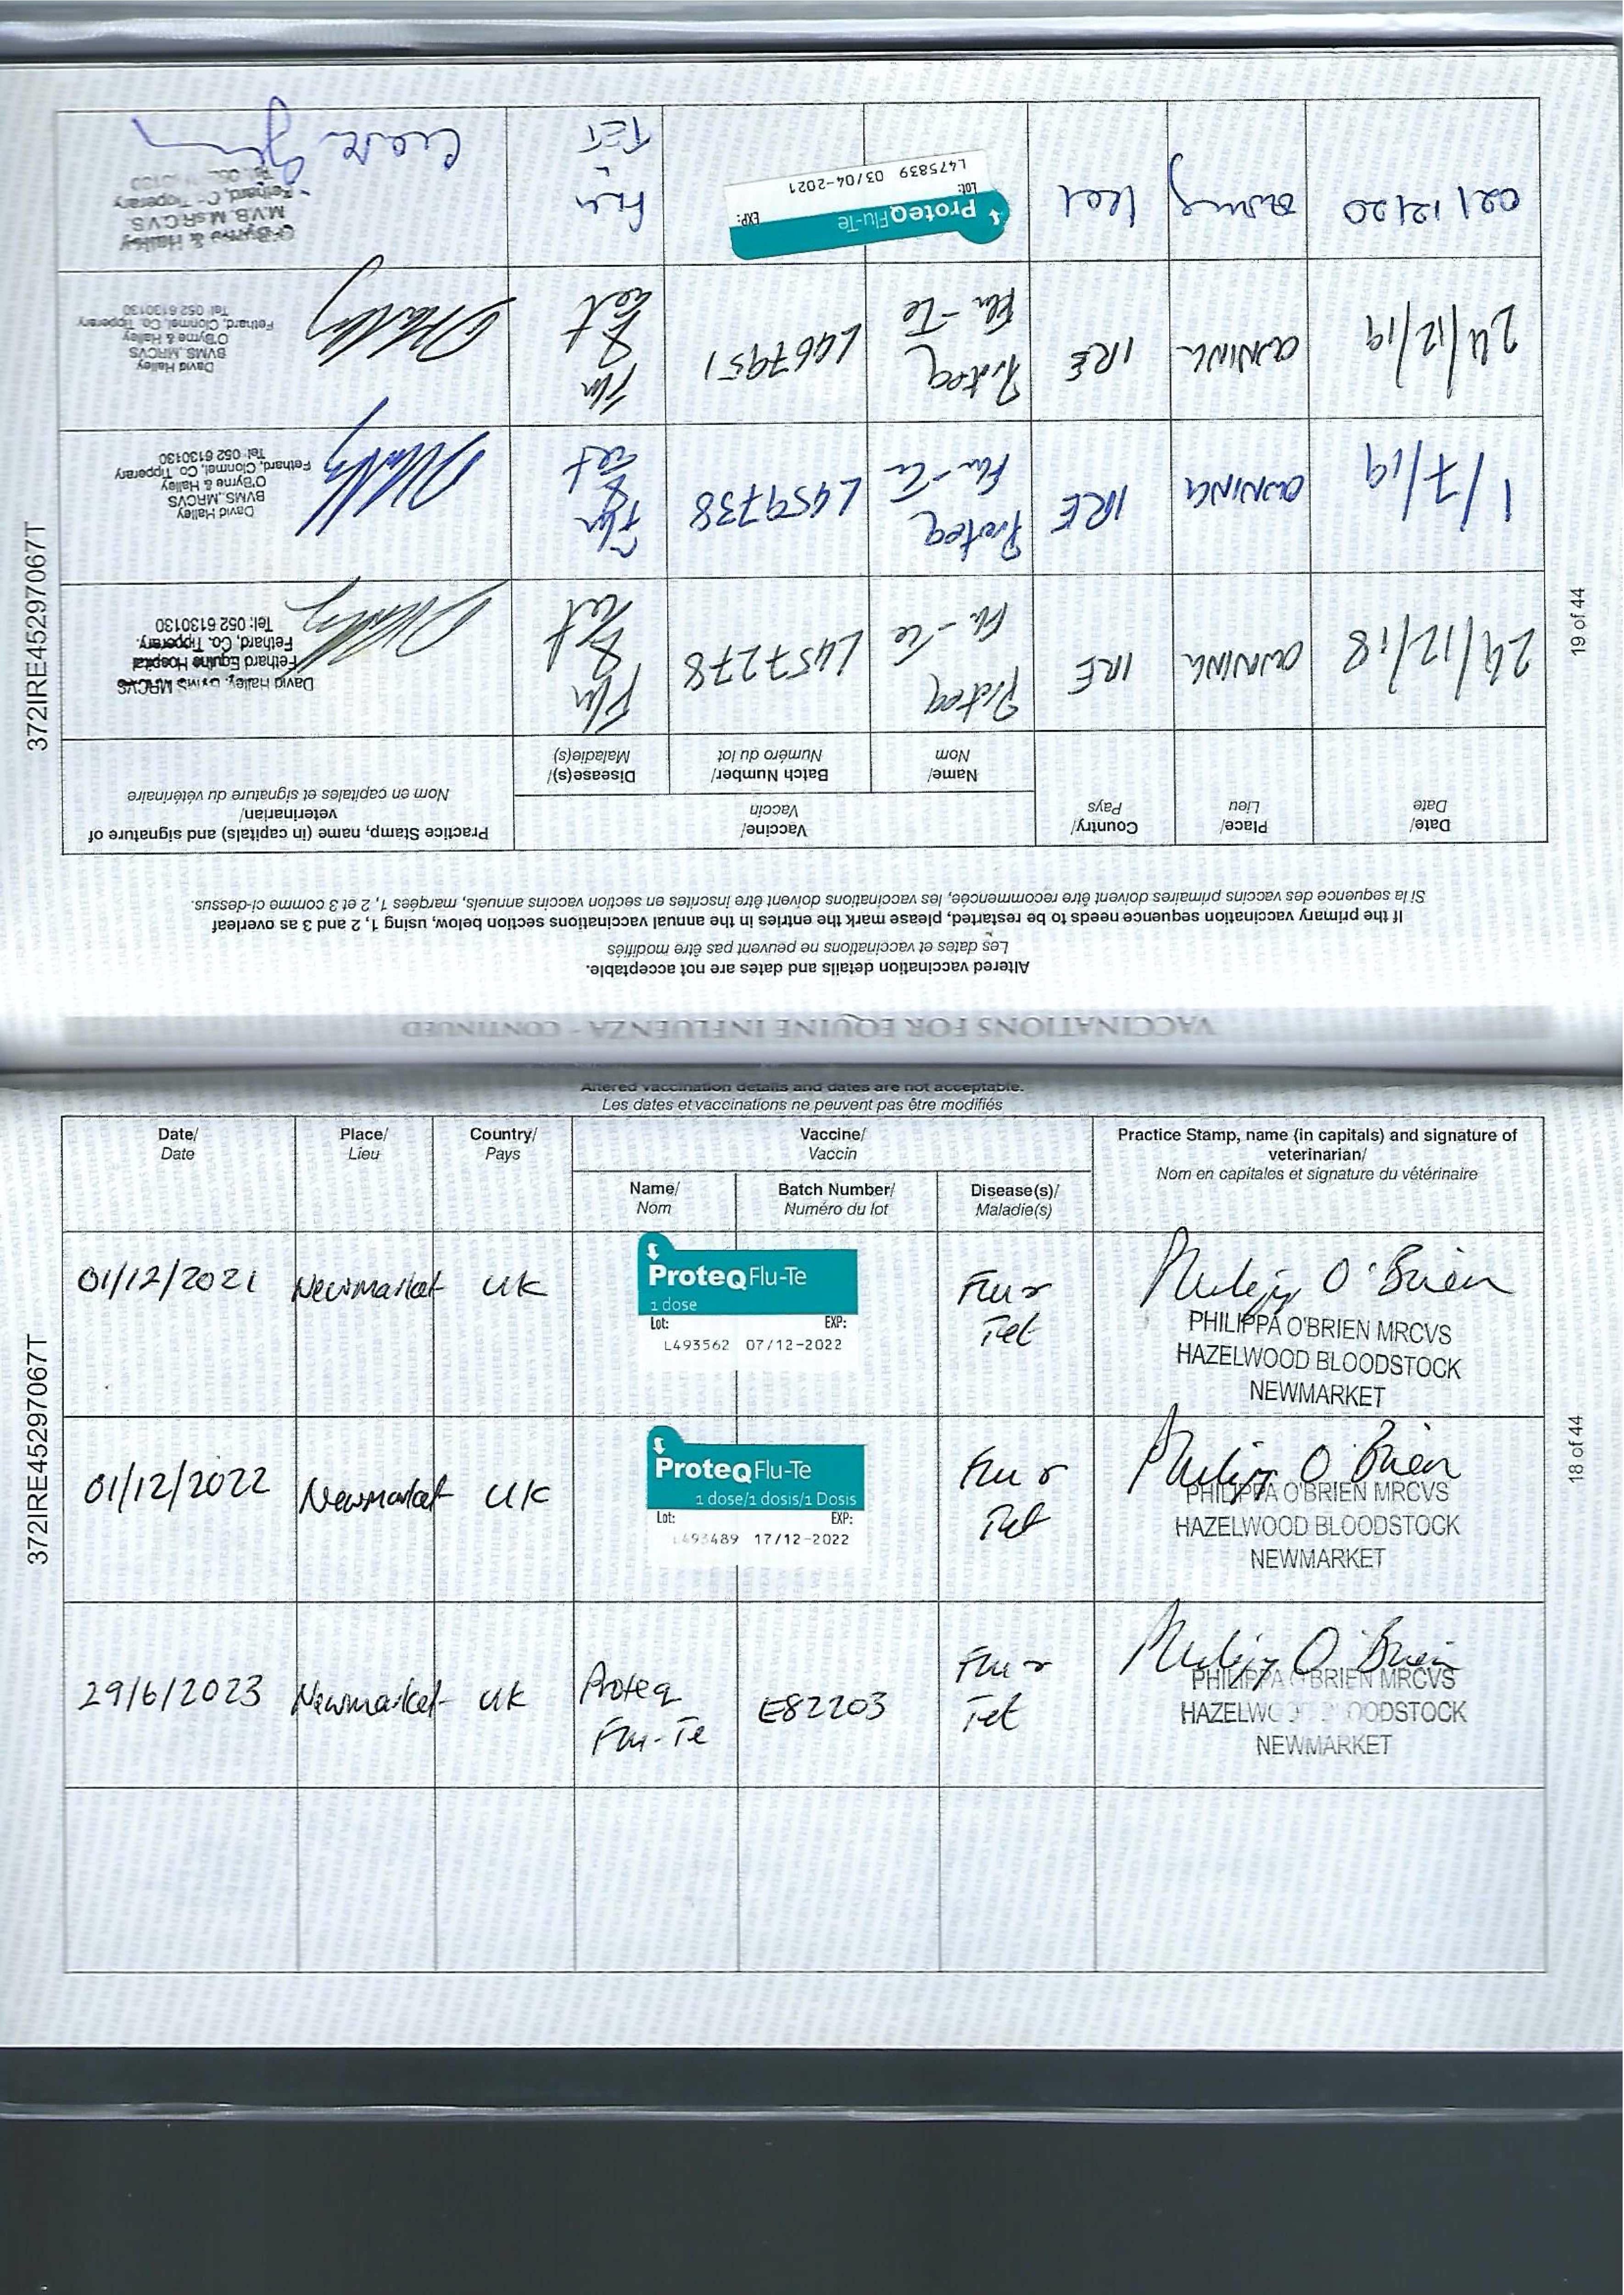 VACCINATIONS FOR EQUINE INFLUENZA - CONTINUED
Altered vaccination details and dates are not acceptable.
Les dates et vaccinations ne peuvent pas être modifiés
If the primary vaccination sequence needs to be restarted, please mark the entries in the annual vaccinations section below, using 1, 2 and 3 as overleaf
Si la sequence des vaccins primaires doivent être recommencée, les vaccinations doivent être inscrites en section vaccins annuels, marqées 1, 2 et 3 comme ci-dessus.
Date/ Place/ Country/ Vaccine/ Practice Stamp, name (in capitals) and signature of
Date Lieu Pays Vaccin veterinarian/
Nom en capitales et signature du vétérinaire
Name/ Batch Number/ Disease(s)/
Nom Numéro du lot Maladie(s)
24/12/18 OWNING IRE Proteq L457278 Flu
Flu-Te & Tet
David Halley, BVMS MRCVS
Fethard Equine Hospital
Fethard, Co. Tipperary.
Tel: 052 6130130
1/7/19 OWNING IRE Proteq L459738 Flu
Flu-Te & Tet
David Halley
BVMS, MRCVS
O'Byrne & Halley
Fethard, Clonmel, Co. Tipperary
Tel: 052 6130130
24/12/19 OWNING IRE Proteq L467951 Flu
Flu-Te & Tet
David Halley
BVMS, MRCVS
O'Byrne & Halley
Fethard, Clonmel, Co. Tipperary
Tel: 052 6130130
02/12/20 Owning Irel Flu
TET
ProteqFlu-Te
Lot: EXP:
L475839 03/04-2021
O'Byrne & Halley
M.V.B. MsRCVS.
Fethard, Co. Tipperary
372IRE45297067T
19 of 44
Altered vaccination details and dates are not acceptable.
Les dates et vaccinations ne peuvent pas être modifiés
Date/ Place/ Country/ Vaccine/ Practice Stamp, name (in capitals) and signature of
Date Lieu Pays Vaccin veterinarian/
Nom en capitales et signature du vétérinaire
Name/ Batch Number/ Disease(s)/
Nom Numéro du lot Maladie(s)
01/12/2021 Newmarket UK Flu &
Tet
ProteqFlu-Te
1 dose
Lot: EXP:
L493562 07/12-2022
Philippa O'Brien
PHILIPPA O'BRIEN MRCVS
HAZELWOOD BLOODSTOCK
NEWMARKET
01/12/2022 Newmarket UK Flu &
Tet
ProteqFlu-Te
1 dose/1 dosis/1 Dosis
Lot: EXP:
L493489 17/12-2022
Philippa O'Brien
PHILIPPA O'BRIEN MRCVS
HAZELWOOD BLOODSTOCK
NEWMARKET
29/6/2023 Newmarket UK Proteq E82203 Flu &
Flu-Te Tet
Philippa O'Brien
PHILIPPA O'BRIEN MRCVS
HAZELWOOD BLOODSTOCK
NEWMARKET
372IRE45297067T
18 of 44